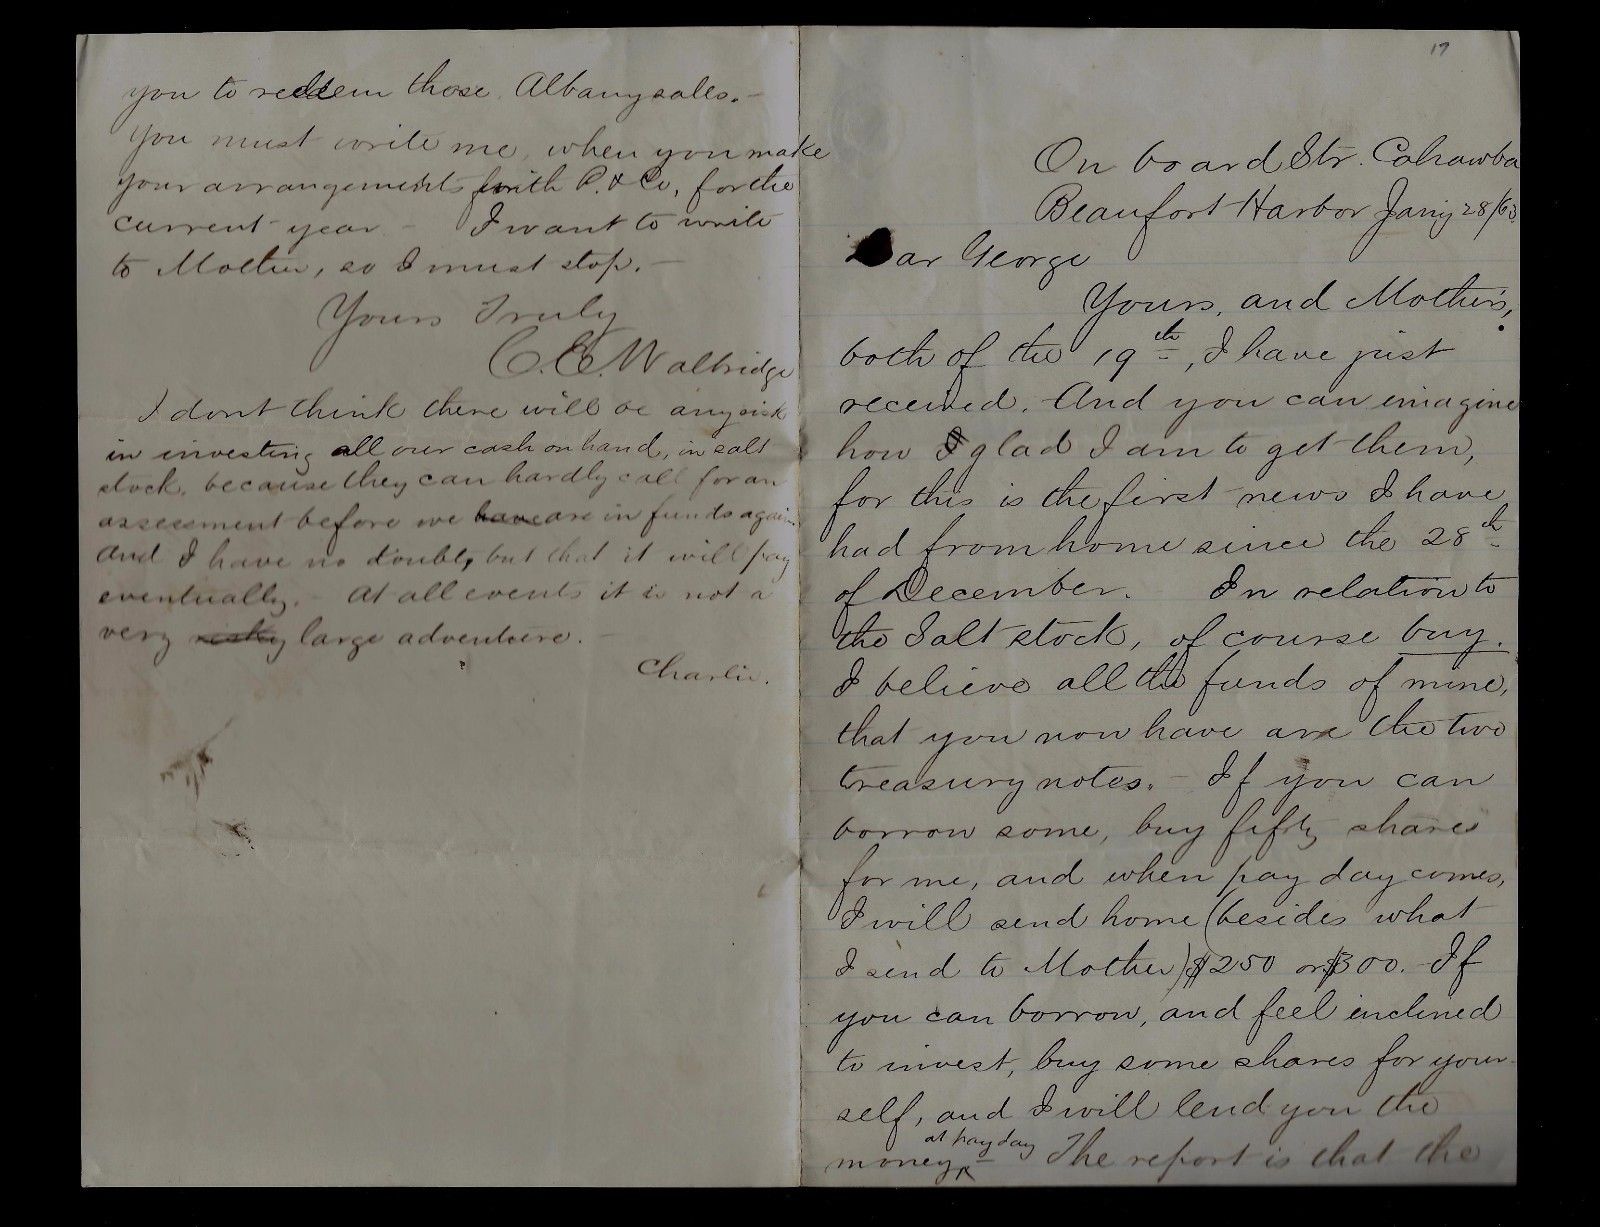 17
On board Str. Cahawba
Beaufort Harbor Jany 28/63
Dear George
Yours, and Mother's,
both of the 19th, I have just
received. And you can imagine
how glad I am to get them,
for this is the first news I have
had from home since the 28th
of December. In relation to
the Salt stock, of course buy.
I believe all the funds of mine,
that you now have are the two
treasury notes. - If you can
borrow some, buy fifty shares
for me, and when pay day comes,
I will send home (besides what
I send to Mother) $250 or $300. - If
you can borrow, and feel inclined
to invest, buy some shares for your-
self, and I will lend you the
money at pay day - The report is that the
you to redeem those Albany sales. -
You must write me, when you make
your arrangements with P. & Co, for the
current year - I want to write
to Mother, so I must stop. -
Yours Truly
C.C. Walbridge
I dont think there will be any risk
in investing all our cash on hand, in salt
stock, because they can hardly call for an
assessment before we have are in funds again.
And I have no doubt, but that it will pay
eventually. - At all events it is not a
very risky large adventure. -
Charlie.